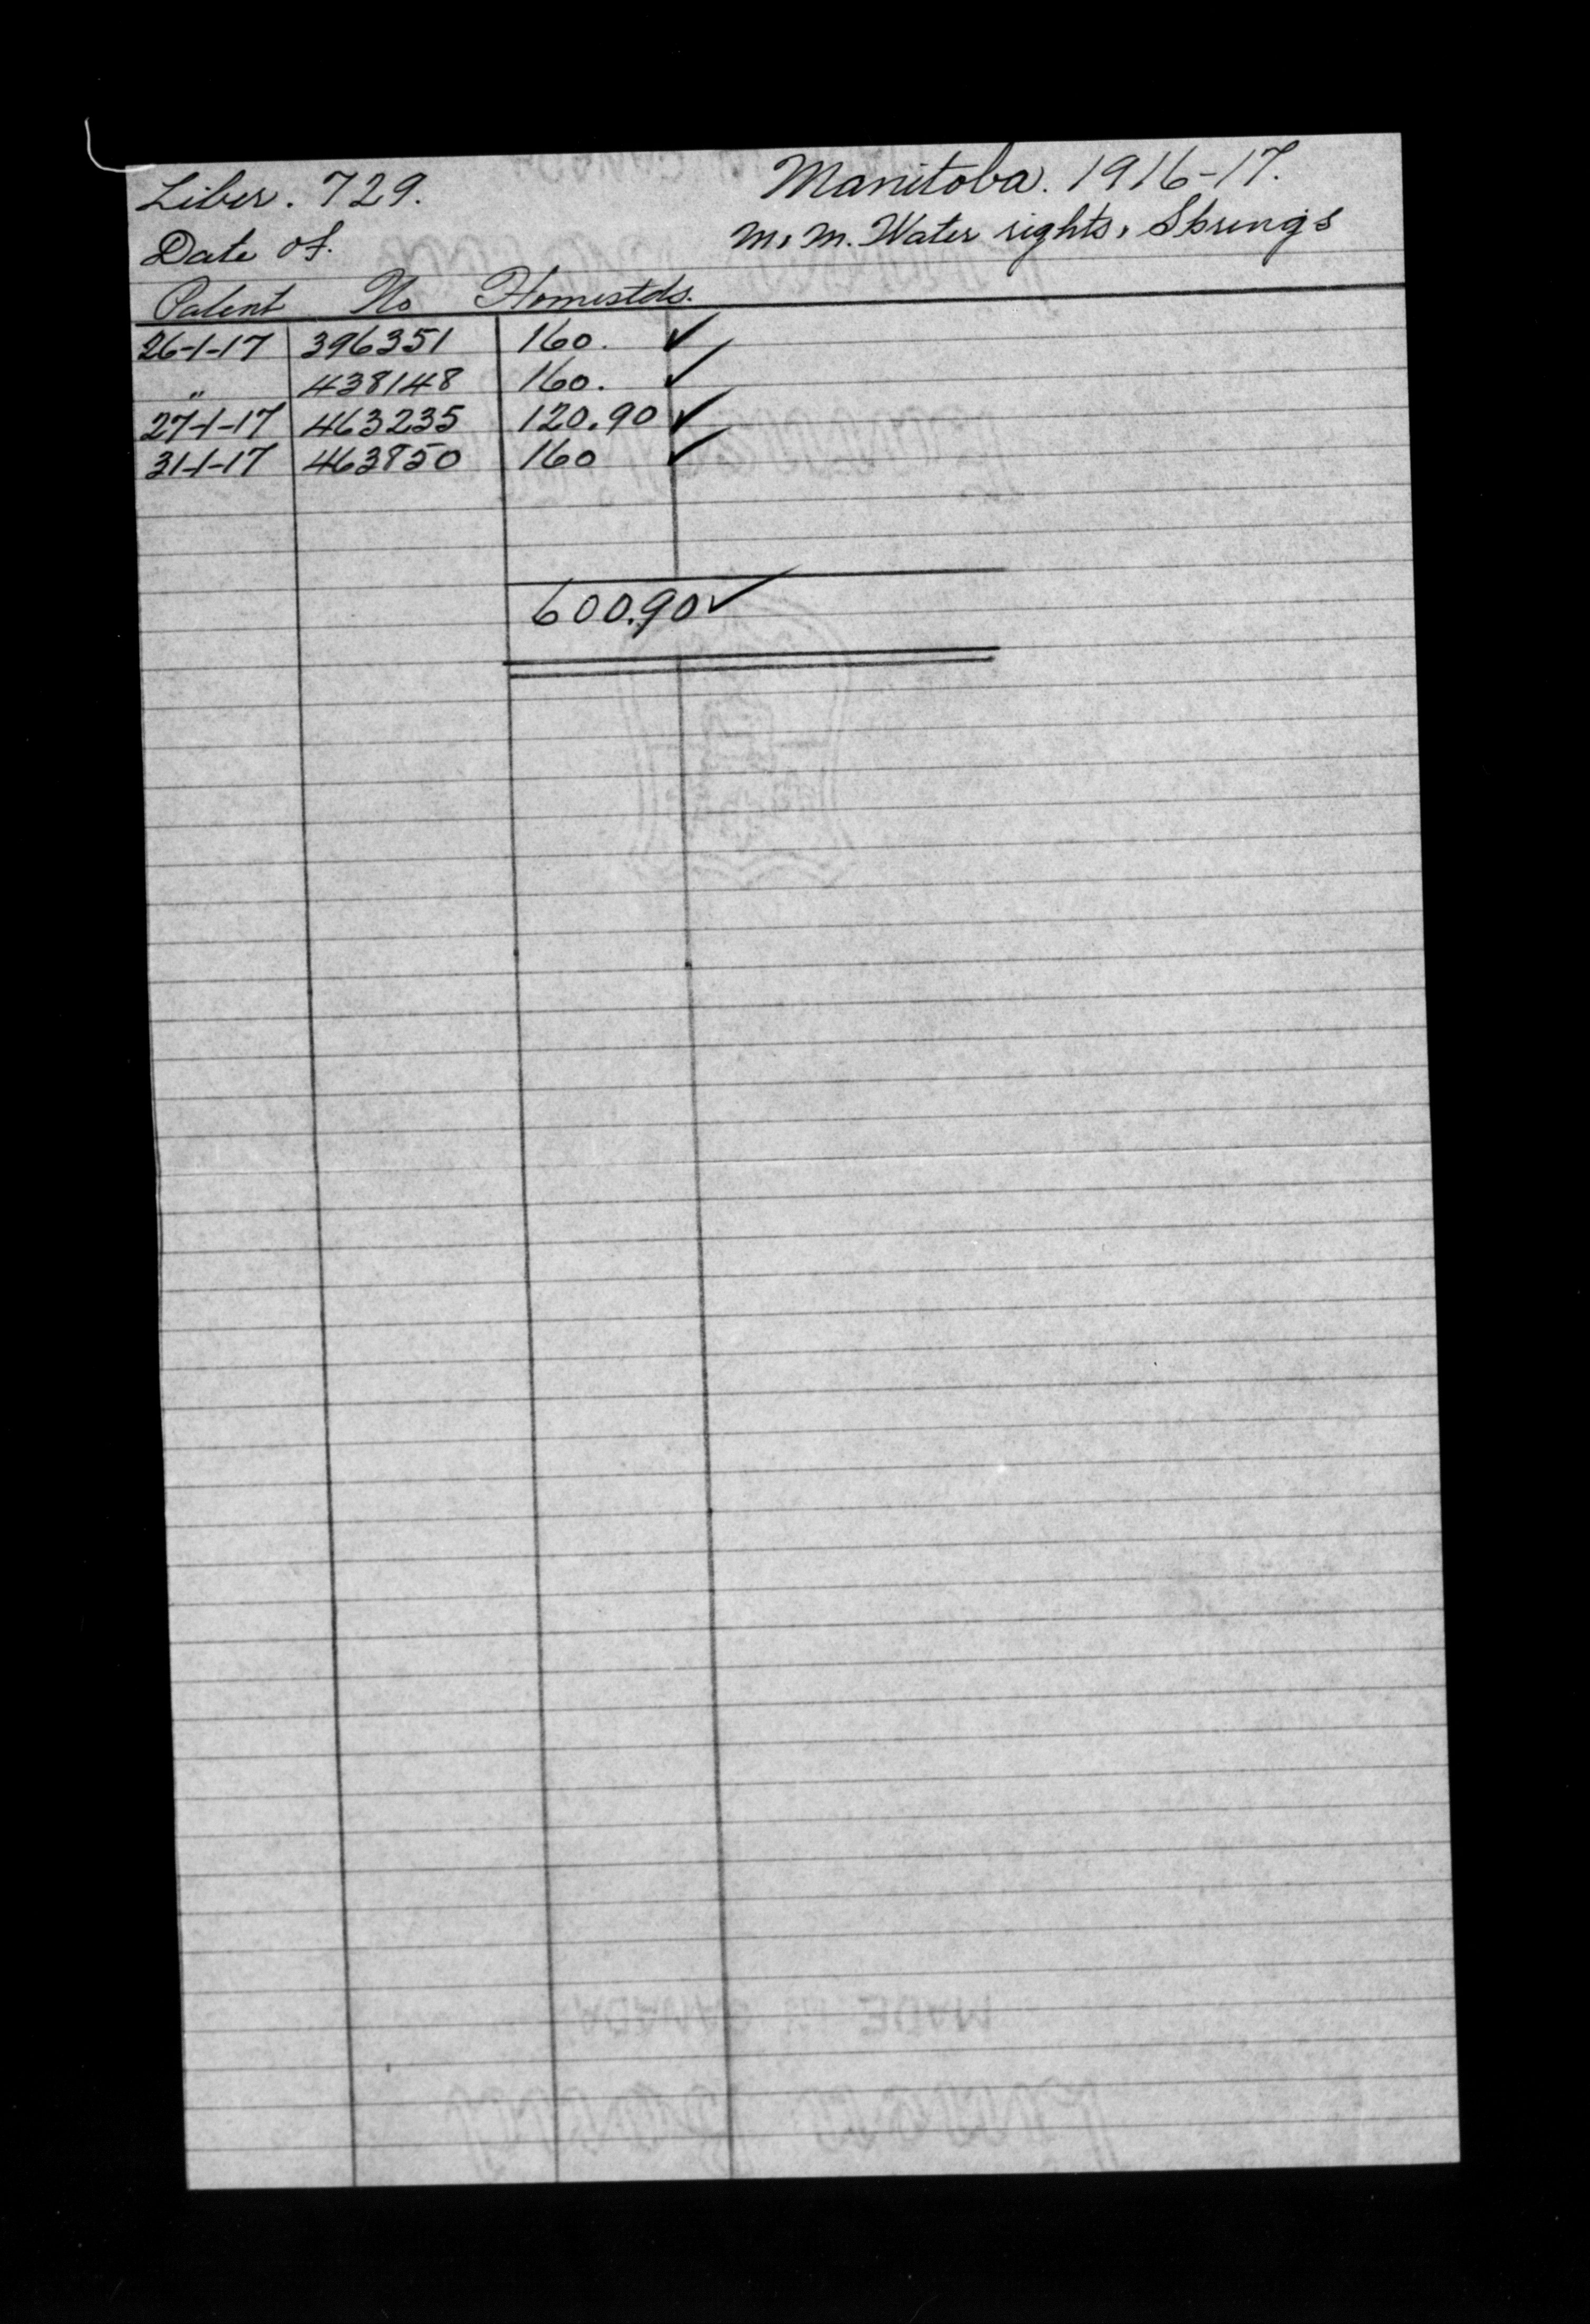 Liber. 729.
Manitoba. 1916-17.
Date of.
M. M. Water rights, Springs
Patent No Homestds.
26-1-17 396351 160. ✓
" 438148 160. ✓
27-1-17 463235 120.90 ✓
31-1-17 463850 160 ✓
600.90 ✓
MADE IN CANADA